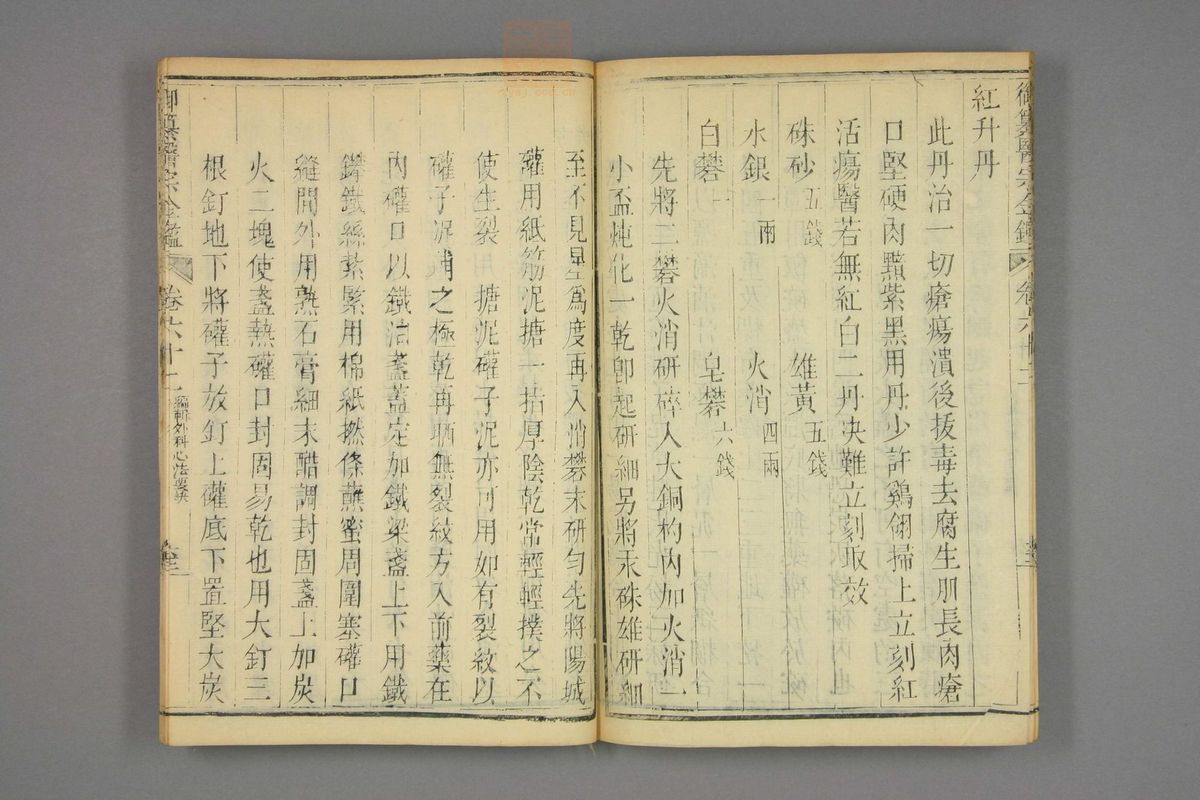 紅升丹
此丹治一切瘡瘍潰後拔毒去腐生肌長肉瘡
口堅硬肉黯紫黑用丹少許鷄翎掃上立刻紅
活瘍醫若無紅白二丹决難立刻取效
硃砂五錢　雄黃五錢
水銀一兩　火消四兩
白礬一　皂礬六錢
先將二礬火消研碎入大銅杓內加火消一
小盃炖化一乾卽起研細另將汞硃雄研細
至不見星爲度再入消礬末研勻先將陽城
罐用紙筋泥搪一指厚陰乾常輕輕撲之不
使生裂　搪泥罐子泥亦可用如有裂紋以
罐子泥補之極乾再晒無裂紋方入前藥在
內罐口以鐵油盞蓋定加鐵梁盞上下用鐵
鐵絲紮緊用棉紙撚條蘸蜜周圍塞罐口
縫間外用熟石膏細末醋調封固盞上加炭
火二塊使盞熱罐口封固易乾也用大釘三
根釘地下將罐子放釘上罐底下置堅大炭
御纂醫宗金鑑
卷六十二
編輯外科心法要訣